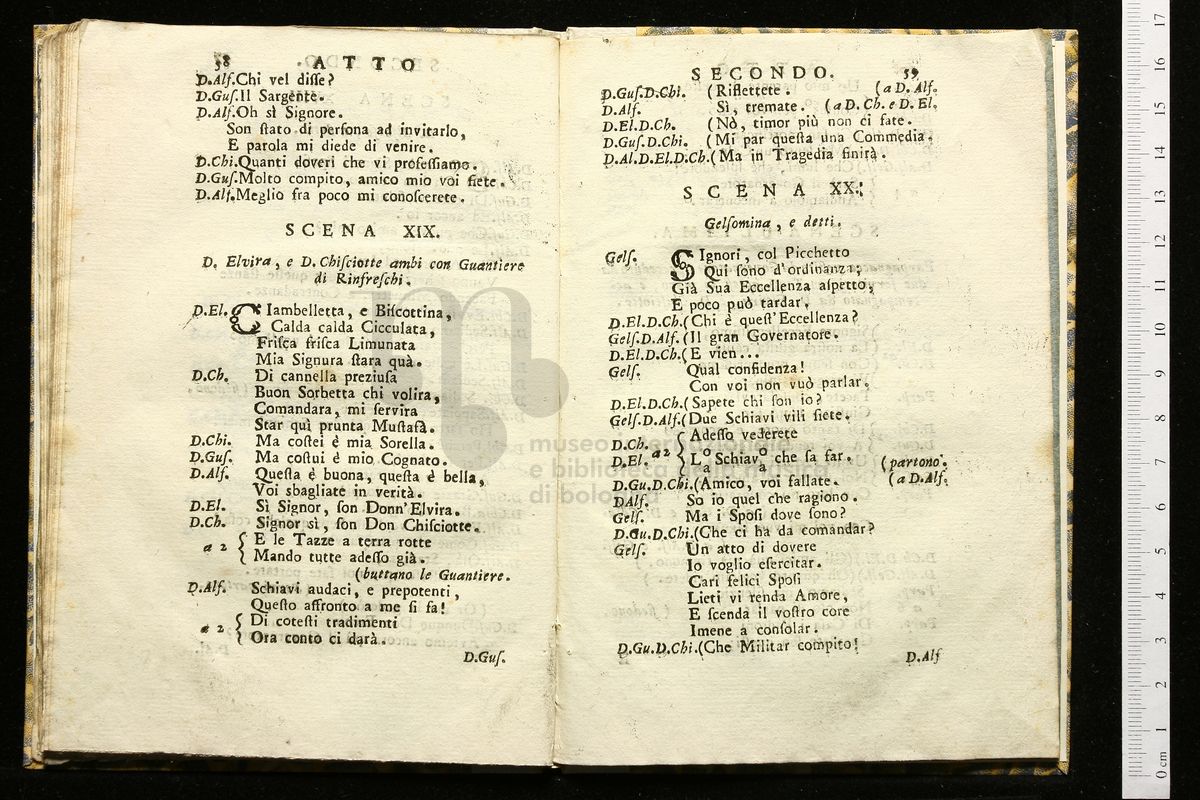 58 ATTO
D.Alſ.Chi vel diſſe?
D.Guſ.Il Sargente.
D.Alſ.Oh sì Signore.
Son ſtato di perſona ad invitarlo,
E parola mi diede di venire.
D.Chi.Quanti doveri che vi profeſſiamo.
D.Guſ.Molto compito, amico mio voi ſiete.
D.Alſ.Meglio fra poco mi conoſcerete.
SCENA XIX.
D. Elvira, e D. Chiſciotte ambi con Guantiere
di Rinfreſchi.
D.El. CIambelletta, e Biſcottina,
Calda calda Cicculata,
Friſca friſca Limunata
Mia Signura ſtara quà.
D.Ch. Di cannella preziuſa
Buon Sorbetta chi volira,
Comandara, mi ſervira
Star quì prunta Muſtafà.
D.Chi. Ma coſtei è mia Sorella.
D.Guſ. Ma coſtui è mio Cognato.
D.Alſ. Queſta è buona, queſta è bella,
Voi sbagliate in verità.
D.El. Sì Signor, ſon Donn'Elvira.
D.Ch. Signor sì, ſon Don Chiſciotte.
a 2 { E le Tazze a terra rotte
Mando tutte adeſſo già.
(buttano le Guantiere.
D.Alſ. Schiavi audaci, e prepotenti,
Queſto affronto a me ſi fa!
a 2 { Di coteſti tradimenti
Ora conto ci darà.
D.Guſ.
SECONDO. 59
D.Guſ.D.Chi. (Riflettete. (a D. Alſ.
D.Alſ. Sì, tremate. (a D. Ch. e D. El.
D.El.D.Ch. (Nò, timor più non ci fate.
D.Guſ.D.Chi. (Mi par queſta una Commedia.
D.Al.D.El.D.Ch.(Ma in Tragedia finirà.
SCENA XX.
Gelſomina, e detti.
Gelſ. SIgnori, col Picchetto
Qui ſono d'ordinanza;
Già Sua Eccellenza aſpetto,
E poco può tardar.
D.El.D.Ch.(Chi è queſt'Eccellenza?
Gelſ.D.Alſ.(Il gran Governatore.
D.El.D.Ch.(E vien...
Gelſ. Qual confidenza!
Con voi non vuò parlar.
D.El.D.Ch.(Sapete chi ſon io?
Gelſ.D.Alſ.(Due Schiavi vili ſiete.
D.Ch. D.El. a 2 { Adeſſo vederete
L o/a Schiav o/a che ſa far. (partono.
D.Gu.D.Chi.(Amico, voi fallate. (a D.Alſ.
D Alſ. So io quel che ragiono.
Gelſ. Ma i Spoſi dove ſono?
D.Gu.D.Chi.(Che ci ha da comandar?
Gelſ. Un atto di dovere
Io voglio eſercitar.
Cari felici Spoſi
Lieti vi renda Amore,
E ſcenda il voſtro core
Imene a conſolar.
D.Gu.D.Chi.(Che Militar compito!
D.Alſ
museo internazionale
e biblioteca della musica
di bologna
0 cm 1 2 3 4 5 6 7 8 9 10 11 12 13 14 15 16 17